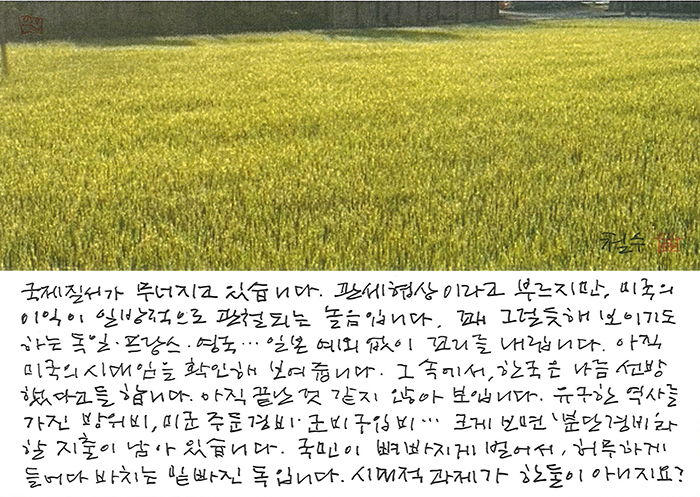 철수
국제질서가 무너지고 있습니다. 관세협상이라고 부르지만, 미국의
이익이 일방적으로 관철되는 놀음입니다. 꽤 그럴듯해 보이기도
하는 독일·프랑스·영국… 일본 예외 없이 꼬리를 내립니다. 아직
미국의 시대임을 확인해 보여줍니다. 그 속에서, 한국은 나름 선방
했다고들 합니다. 아직 끝난 것 같지 않아 보입니다. 유구한 역사를
가진 방위비, 미군 주둔경비·군비구입비… 크게 보면 '분단경비'라
할 지출이 남아 있습니다. 국민이 뼈빠지게 벌어서, 허무하게
들어다 바치는 밑빠진 독입니다. 시대적 과제가 한둘이 아니지요?